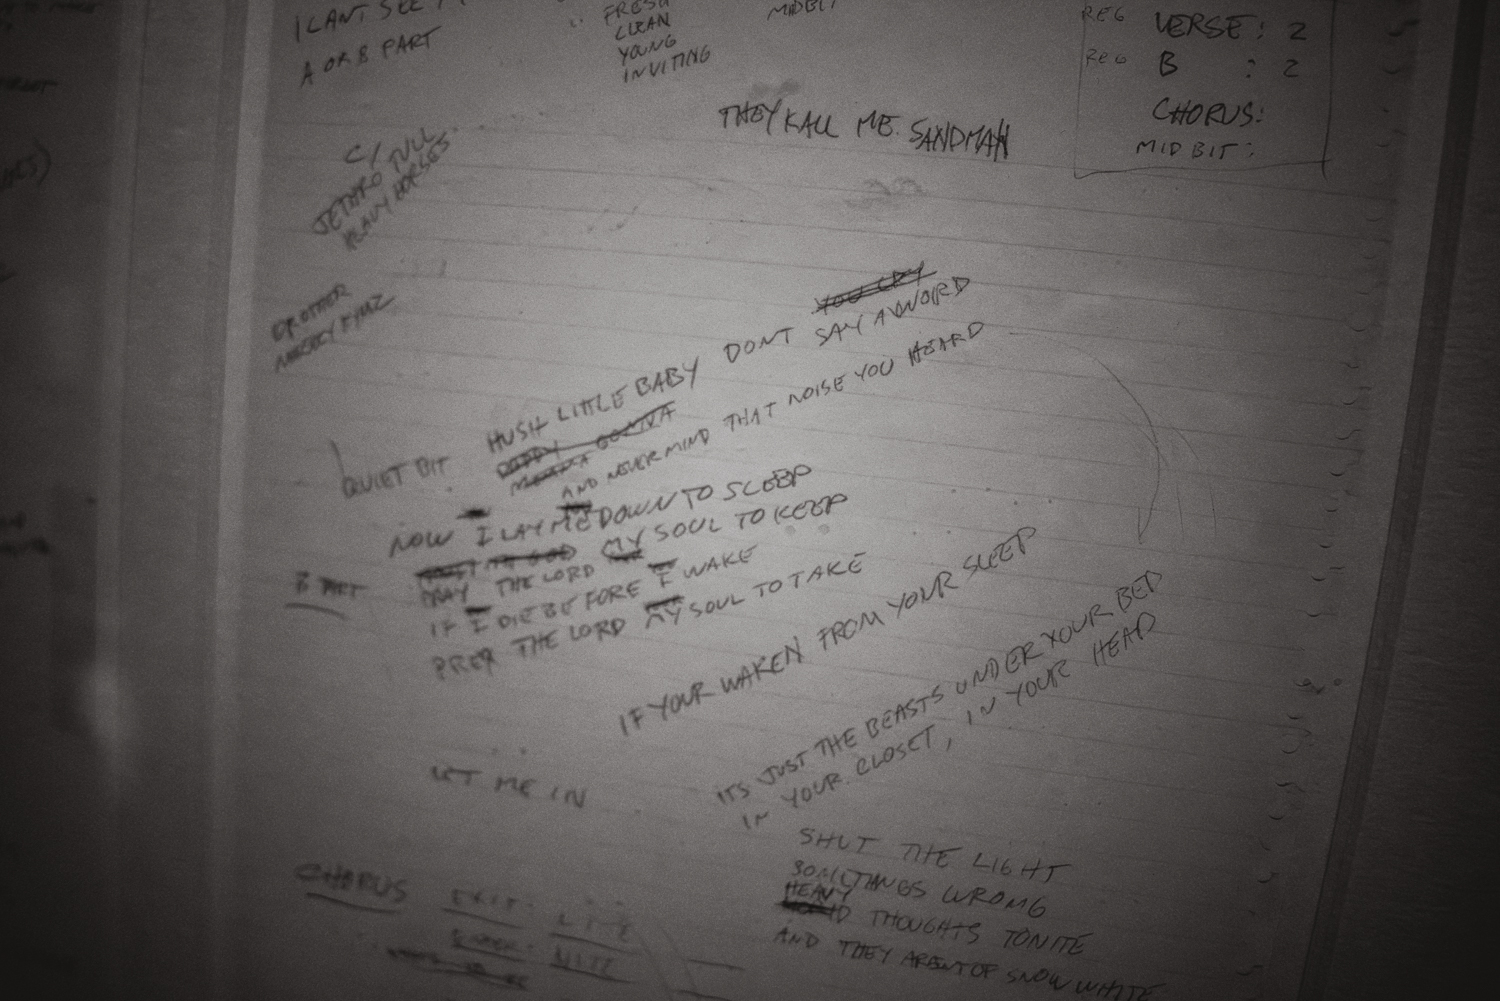 I CANT SEE
A OR B PART
FRESH
CLEAN
YOUNG
INVITING
MIDBIT
REG VERSE : 2
REG B : 2
CHORUS:
MID BIT :
THEY KALL ME SANDMAN
C/
JETHRO TULL
HEAVY HORSES
OR OTHER
YOU CRY
QUIET BIT
HUSH LITTLE BABY DONT SAY A WORD
DADDY GONNA
MAMA
AND NEVER MIND THAT NOISE YOU HEARD
NOW I LAY ME DOWN TO SLEEP
PRAY THE LORD MY SOUL TO KEEP
B PART
IF I DIE BEFORE I WAKE
PREY THE LORD MY SOUL TO TAKE
IF YOUR WAKEN FROM YOUR SLEEP
ITS JUST THE BEASTS UNDER YOUR BED
IN YOUR CLOSET, IN YOUR HEAD
LET ME IN
SHUT THE LIGHT
SOMETHINGS WRONG
HEAVY THOUGHTS TONITE
AND THEY ARENT OF SNOW WHITE
CHORUS EXIT: LITE
ENTER: NITE